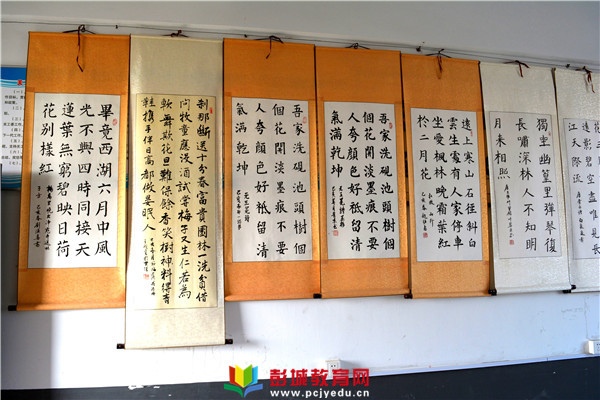 畢竟西湖六月中風
光不與四時同接天
蓮葉無窮碧映日荷
花別樣紅
刹那断送十分春富貴園林一洗貧借
問牧童應沒酒試嘗梅子又生仁若為
軟舞欺花旦難保餘香笑樹神料得青
鞋携手伴日高都做晏眠人
吾家洗硯池頭樹個
個花開淡墨痕不要
人夸顏色好祗留清
氣滿乾坤
吾家洗硯池頭樹個
個花開淡墨痕不要
人夸顏色好祗留清
氣滿乾坤
遠上寒山石徑斜白
雲生處有人家停車
坐愛楓林晚霜葉紅
於二月花
獨坐幽篁里彈琴復
長嘯深林人不知明
月來相照
遠影碧空盡唯見長
江天際流
彭城教育网
www.pcjyedu.cn